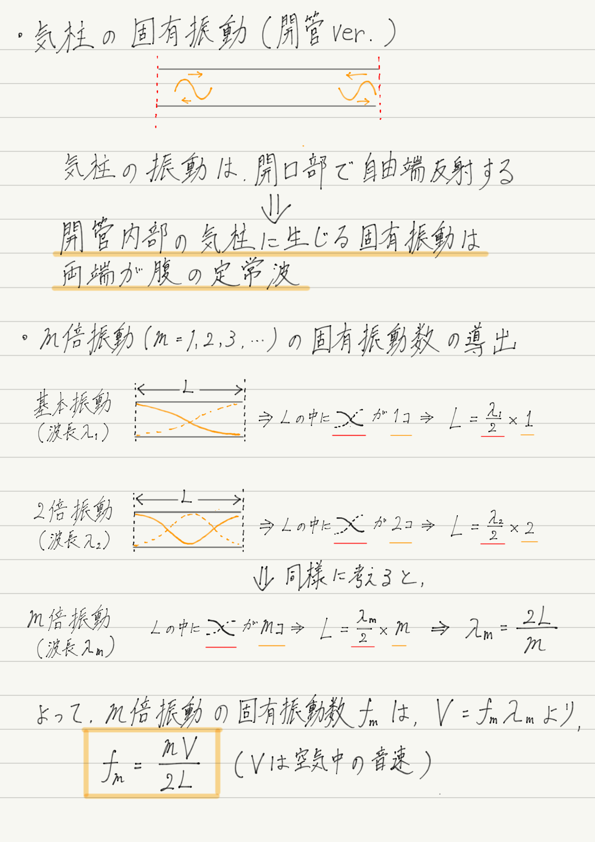 ・気柱の固有振動(開管ver.)
気柱の振動は、開口部で自由端反射する
⇓
開管内部の気柱に生じる固有振動は
両端が腹の定常波
・m倍振動(m=1,2,3,…)の固有振動数の導出
基本振動
(波長λ₁)
L
⇒ Lの中に が1コ ⇒ L = λ₁/2 × 1
2倍振動
(波長λ₂)
L
⇒ Lの中に が2コ ⇒ L = λ₂/2 × 2
⇓ 同様に考えると,
m倍振動
(波長λm)
Lの中に がmコ ⇒ L = λm/2 × m ⇒ λm = 2L/m
よって、m倍振動の固有振動数fmは, V = fmλmより,
fm = mV/2L (Vは空気中の音速)